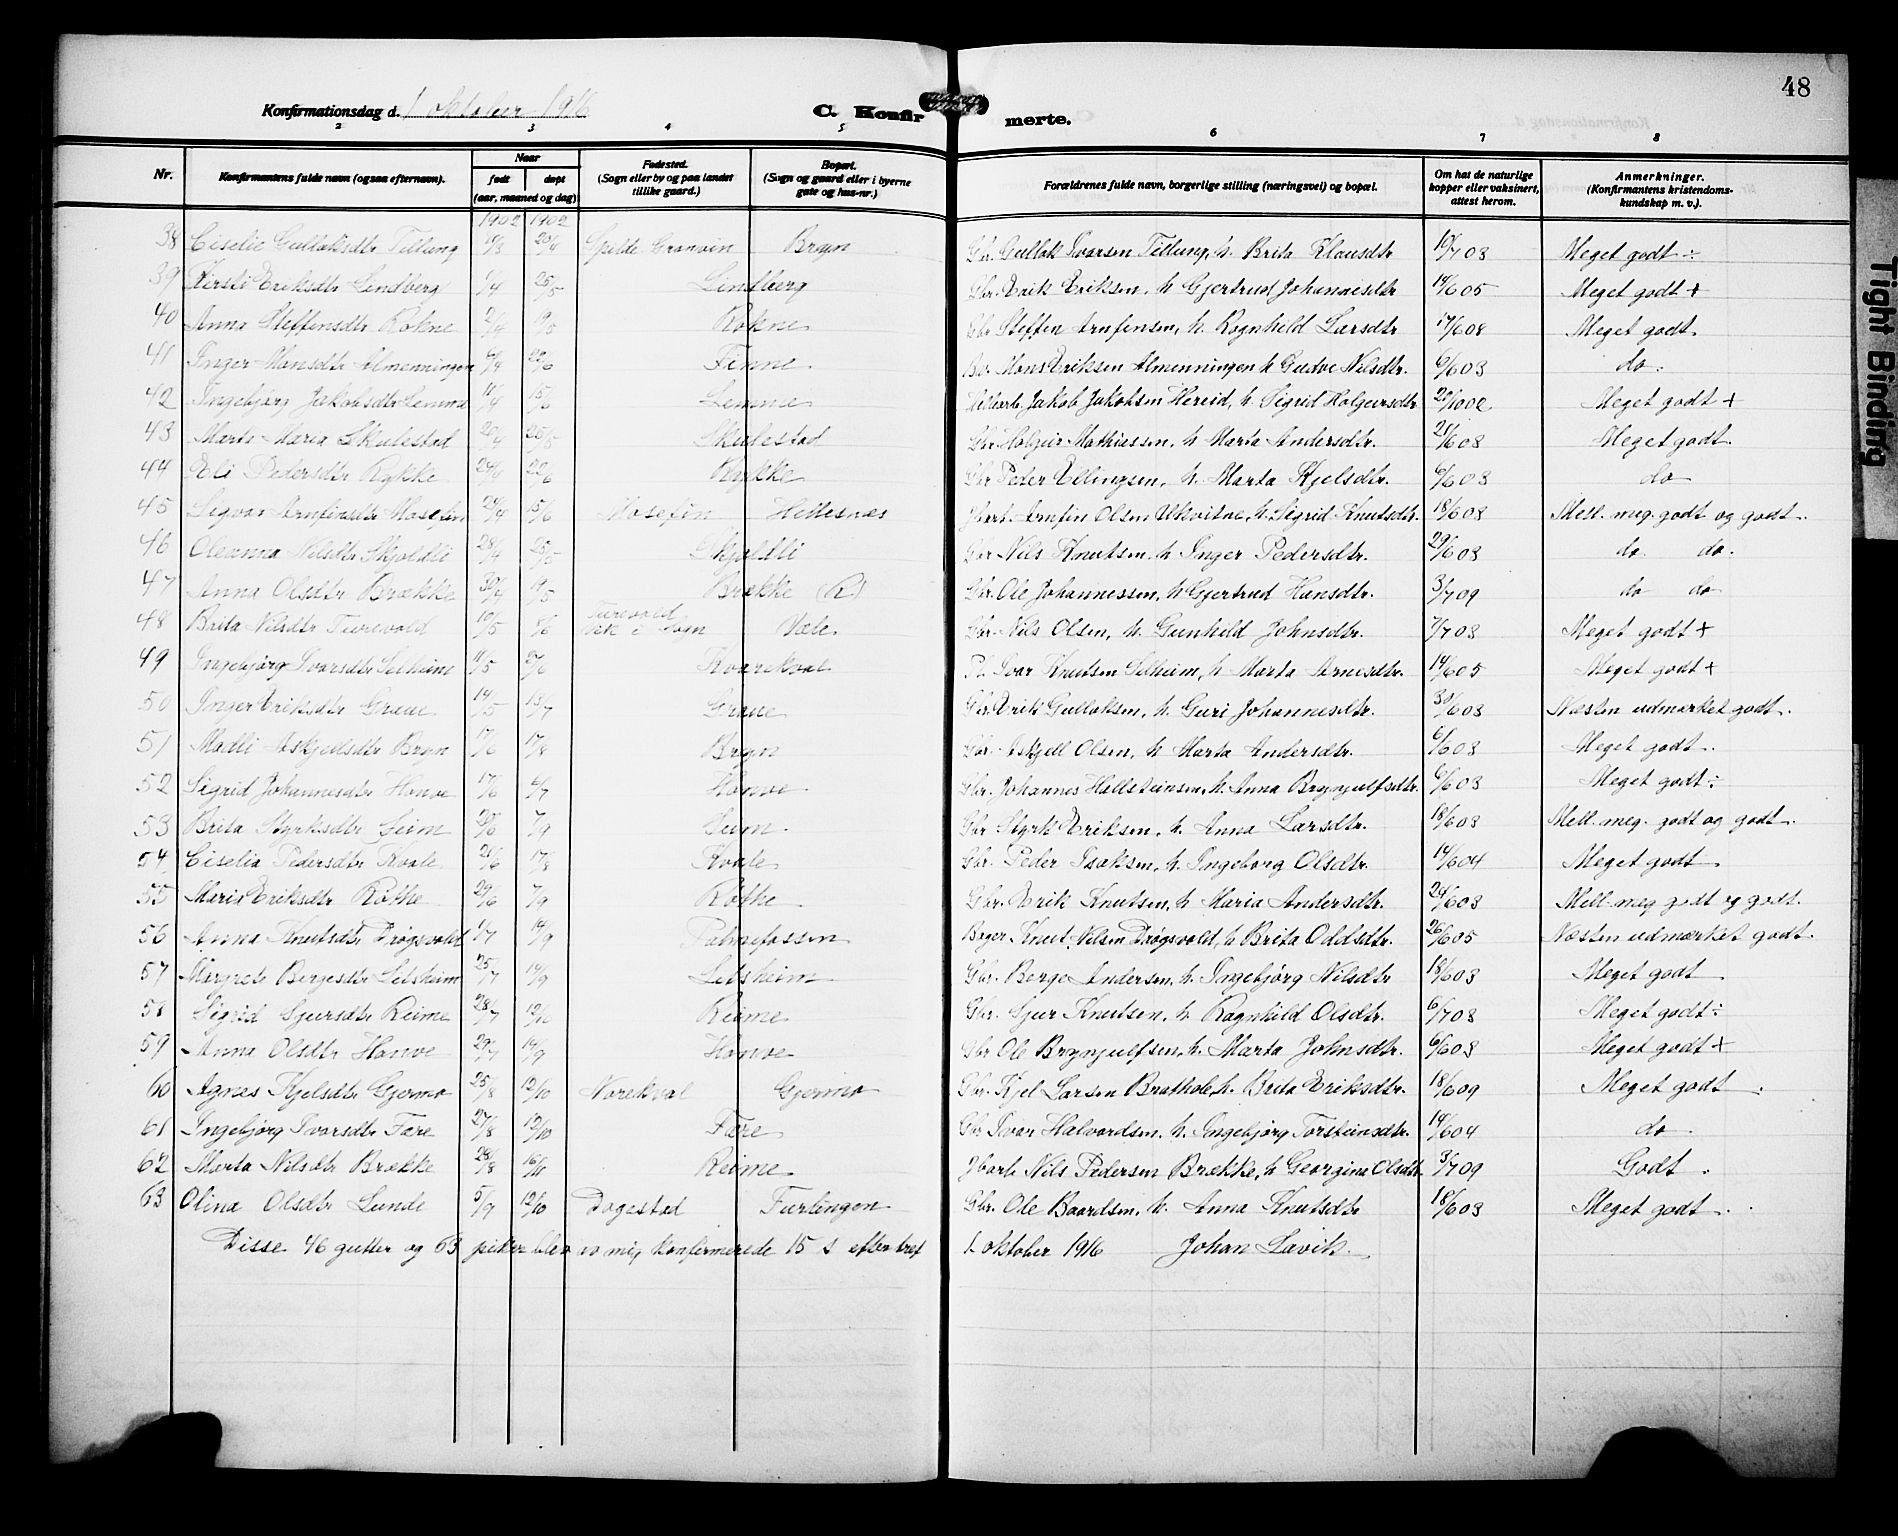 48
Konfirmationsdag d. 1 Oktober 1916 C. Konfirmerte.
2 3 4 5 6 7 8
Nr. Konfirmantens fulde navn (ogsaa efternavn). Naar født døpt (aar, maaned og dag) Fødested. (Sogn eller by og paa landet tillike gaard.) Bopæl. (Sogn og gaard eller i byerne gate og hus-nr.) Forældrenes fulde navn, borgerlige stilling (næringsvei) og bopæl. Om hat de naturlige kopper eller vaksinert, attest herom. Anmerkninger. (Konfirmantens kristendomskundskap m. v.).
1902 1902
38 Ciselie Gulleiksdtr Tillung Spilde Granvin Bryn Gbr. Gulleik Ivarsen Tillung, h. Brita Klausdtr 10/7 03 Meget godt ÷
39 Kirsti Eriksdtr Lindberg 1/4 25/5 Lindberg Gbr. Erik Eriksen, h. Gjertrud Johannesdtr 14/6 05 Meget godt +
40 Anna Steffensdtr Rokne Rokne Gbr Steffen Arnfinsen, h. Ragnhild Larsdtr 17/6 08 Meget godt.
41 Inger Monsdtr Almenningen Finne Mons Eriksen Almenningen h Gudve Nilsdtr. 6/6 03 do.
42 Ingebjørg Jakobsdtr Lemme 11/4 15/6 Lemme Jakob Jakobsen Hereid, h. Sigrid Holgeirsdtr Meget godt +
43 Marta Maria Skulestad 20/4 25/5 Skulestad Gbr. Holgeir Mathiassen, h Marta Andersdtr. Meget godt.
44 Eli Pedersdtr Rykke Rykke Gbr Peder Ellingsen, h. Marta Kjelsdtr. 6/6 03 do
45 Sigvor Arnfinsdtr Mosefin 24/4 15/6 Mosefin Hellesnes Jbarb. Arnfin Olsen Ukvitne, h. Sigrid Knutsdtr. 18/6 03 Mell. meg. godt og godt.
46 Oleanna Nilsdtr Skjoldli 28/4 25/5 Skjoldli Gbr Nils Knutsen, h Inger Pedersdtr. 29/6 03 do. do.
47 Anna Olsdtr Brække 30/4 19/5 Brække (R) Gbr. Ole Johannessen, h Gjertrud Hansdtr. 3/7 09 do do
48 Brita Nilsdtr Turevold 10/5 Turevold Vik i Sogn Væle. Gbr. Nils Olsen, h. Gunhild Johnsdtr. 7/7 03 Meget godt +
49 Ingebjørg Ivarsdtr Selheim 11/5 Kvarekval Ivar Knutsen Selheim, h. Marta Arnesdtr. 14/6 05 Meget godt +
50 Inger Eriksdtr Graue 14/5 13/7 Graue Gbr. Erik Gulleiksen, h. Guri Johannesdtr. 30/6 03 Næsten udmærket godt.
51 Madli Askjellsdtr Bryn 17/6 17/8 Bryn Gbr. Askjell Olsen, h Marta Andersdtr. 6/6 03 Meget godt.
52 Sigrid Johannesdtr Honve 17/6 Honve Gbr. Johannes Hallsteinsen, h. Anna Brynjulfsdtr. 6/6 03 Meget godt ÷
53 Brita Styrksdtr Seim 7/9 Seim. Gbr Styrk Eriksen, h. Anna Larsdtr. 18/6 03 Mell. meg. godt og godt.
54 Ciselia Pedersdtr Kvale 17/8 Kvale Gbr. Peder Isaksen, h. Ingeborg Olsdtr. 14/6 04 Meget godt
55 Maria Eriksdtr Røthe 29/6 7/9 Røthe Gbr. Erik Knutsen, h Maria Andersdtr. 24/6 03 Mell. meg godt og godt.
56 Anna Knutsdtr Drøgsvold 1/7 14/9 Palmefossen Bager Knut Nilsen Drøgsvold, h Brita Oddsdtr. 26/6 05 Næsten udmærket godt.
57 Margrete Bergesdtr Lidsheim 25/7 14/9 Lidsheim Gbr. Berge Andersen, h. Ingebjørg Nilsdtr 18/6 03 Meget godt
58 Sigrid Sjursdtr Reime 28/7 12/10 Reime Gbr. Sjur Knutsen, h Ragnhild Olsdtr. 6/7 03 Meget godt ÷
59 Anna Olsdtr Honve 29/7 14/9 Honve Gbr Ole Brynjulfsen, h. Marta Johnsdtr. 6/6 03 Meget godt +
60 Agnes Kjelsdtr Gjerme 25/8 12/10 Norekval Gjerme Gbr. Kjel Larsen Brathole, h. Brita Eriksdtr. 18/6 09 Meget godt.
61 Ingebjørg Ivarsdtr Fære 27/8 12/10 Fære Gbr Ivar Halvardsen, h. Ingebjørg Torsteinsdtr. 14/6 04 do.
62 Marta Nilsdtr Brække 28/8 Reime Jbarb Nils Pedersen Brække, h Georgina Olsdtr 3/7 09 Godt.
63 Olina Olsdtr Lunde 5/9 12/10 Dagestad Furlingen Gbr. Ole Baardsen, h. Anna Knutsdtr 18/6 03 Meget godt.
Disse 46 gutter og 63 piker blev av mig konfirmerede 15 s efter tref 1 oktober 1916 Johan Lavik.
Tight Binding